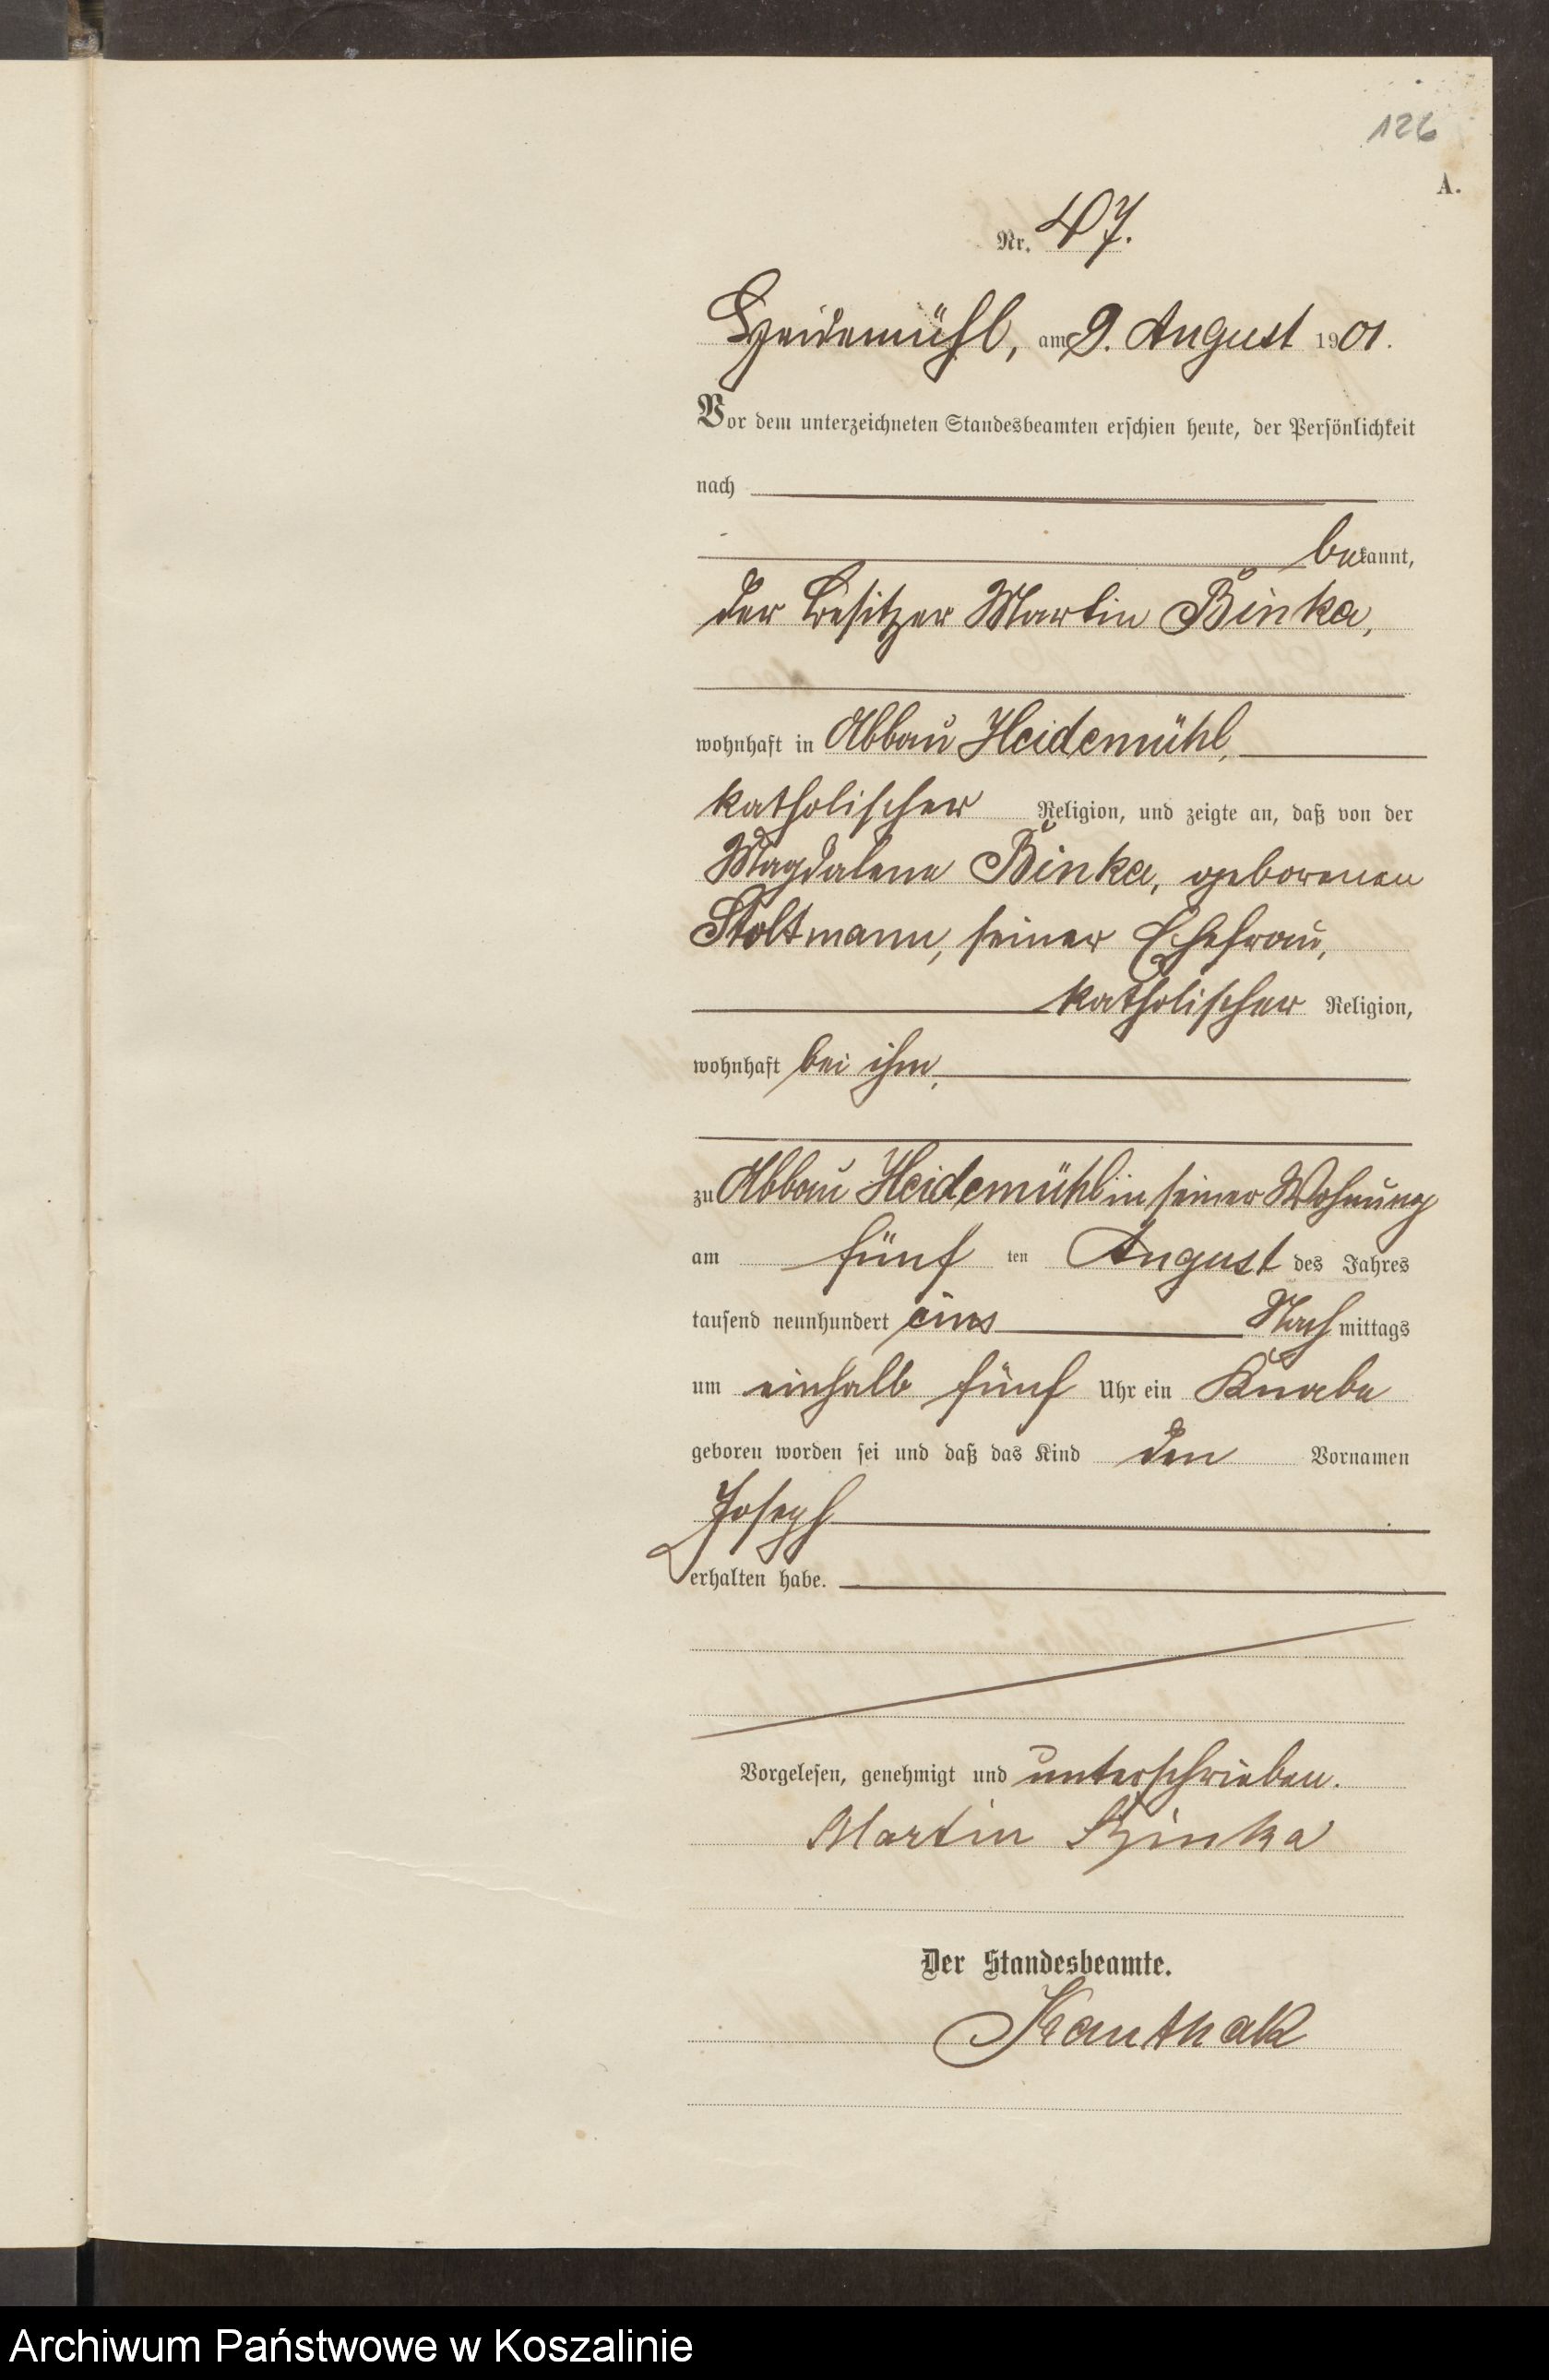 126
A.
Nr. 47.
Heidemühl, am 9. August 1901.
Vor dem unterzeichneten Standesbeamten erschien heute, der Persönlichkeit
nach
bekannt,
der Besitzer Martin Binka,
wohnhaft in Abbau Heidemühl,
katholischer Religion, und zeigte an, daß von der
Magdalena Binka, geborenen
Stoltmann, seiner Ehefrau,
katholischer Religion,
wohnhaft bei ihm,
zu Abbau Heidemühl in seiner Wohnung
am fünf ten August des Jahres
tausend neunhundert eins Nach mittags
um einhalb fünf Uhr ein Knabe
geboren worden sei und daß das Kind den Vornamen
Joseph
erhalten habe.
Vorgelesen, genehmigt und unterschrieben.
Martin Binka
Der Standesbeamte.
Kanthak
Archiwum Państwowe w Koszalinie